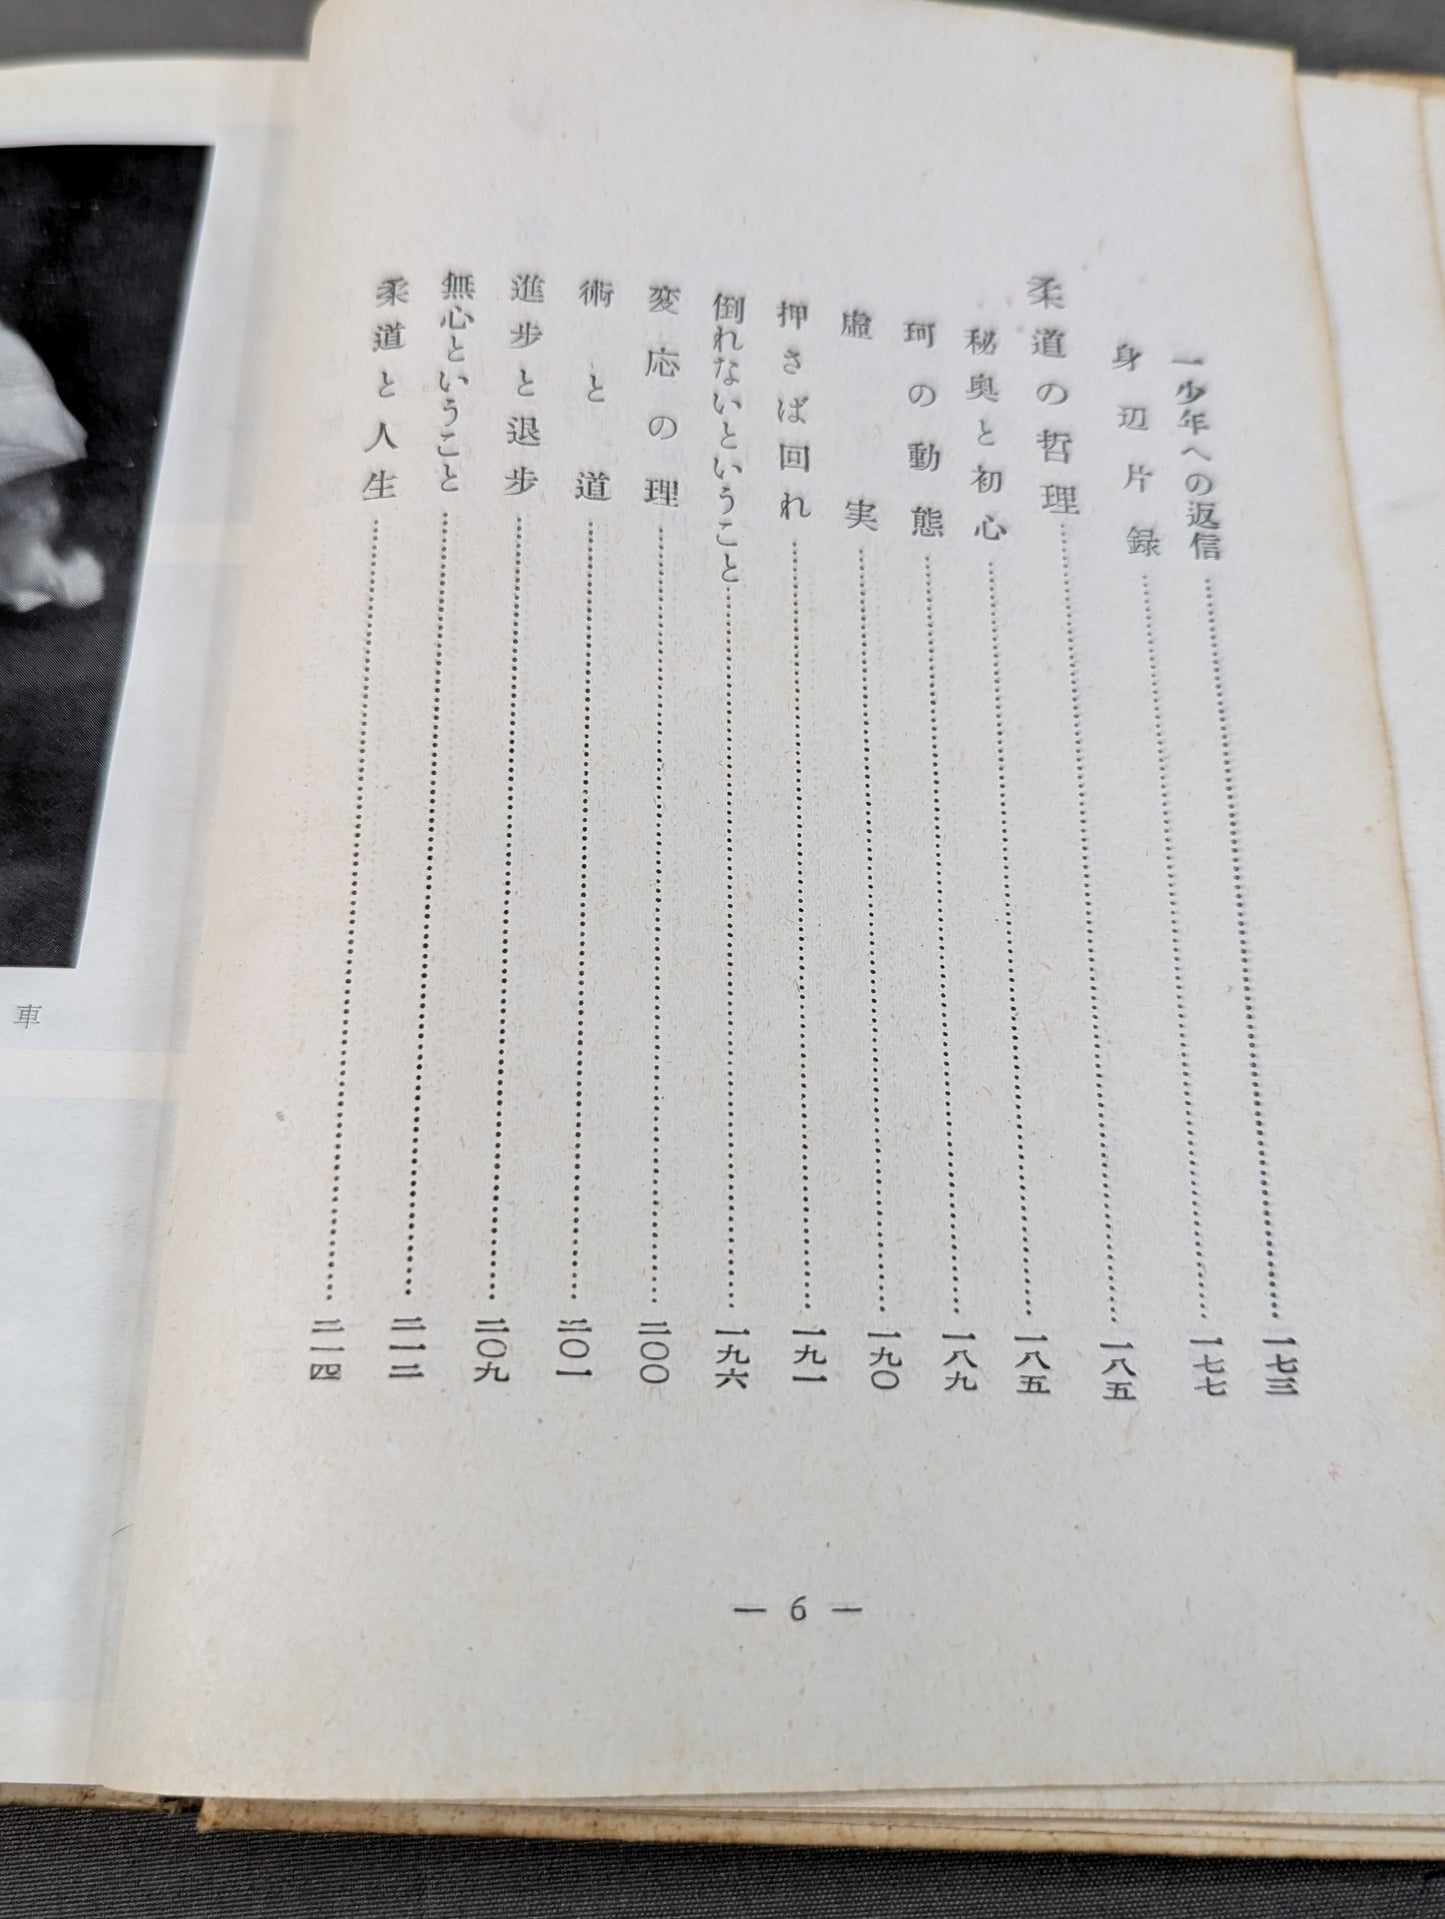 一少年への返信……一七三
身辺片録……一七七
柔道の哲理……一八五
秘奥と初心……一八五
珂の動態……一八九
虚実……一九〇
押さば回れ……一九一
倒れないということ……一九六
変応の理……二〇〇
術と道……二〇一
進歩と退歩……二〇九
無心ということ……二一二
柔道と人生……二一四
— 6 —
車